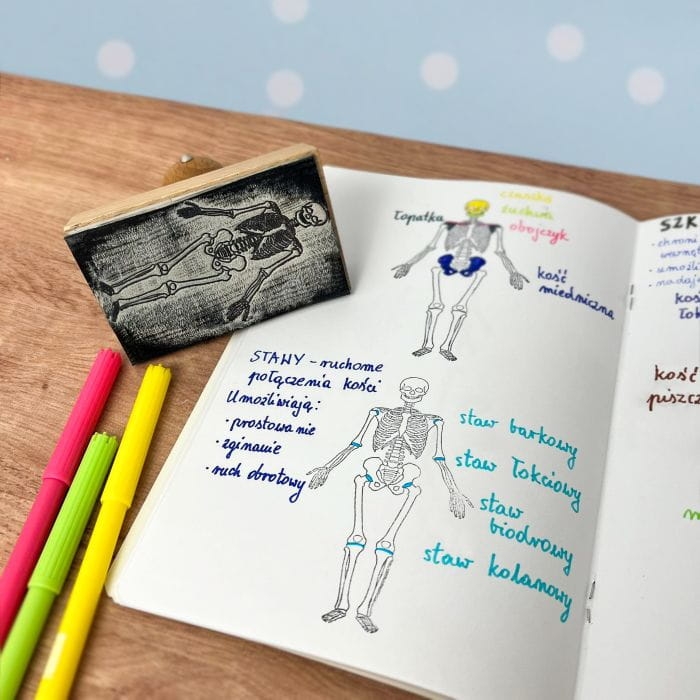 czaszka
żuchwa
łopatka
obojczyk
kość
miedniczna
STAWY - ruchome
połączenia kości
Umożliwiają:
• prostowanie
• zginanie
• ruch obrotowy
staw barkowy
staw łokciowy
staw
biodrowy
staw kolanowy
SZK
• chroni
• umożli
• nadaje
kość
piszcz